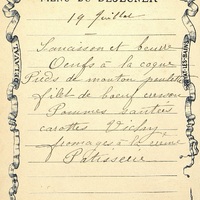 MENU DU DÉJEUNER
19 Juillet
Saucisson et beurre
Oeufs à la coque
Pieds de mouton poulette
filet de boeuf cresson
Pommes sautées
carottes Vichy
fromages à la crème
Patisserie
RELAVAL